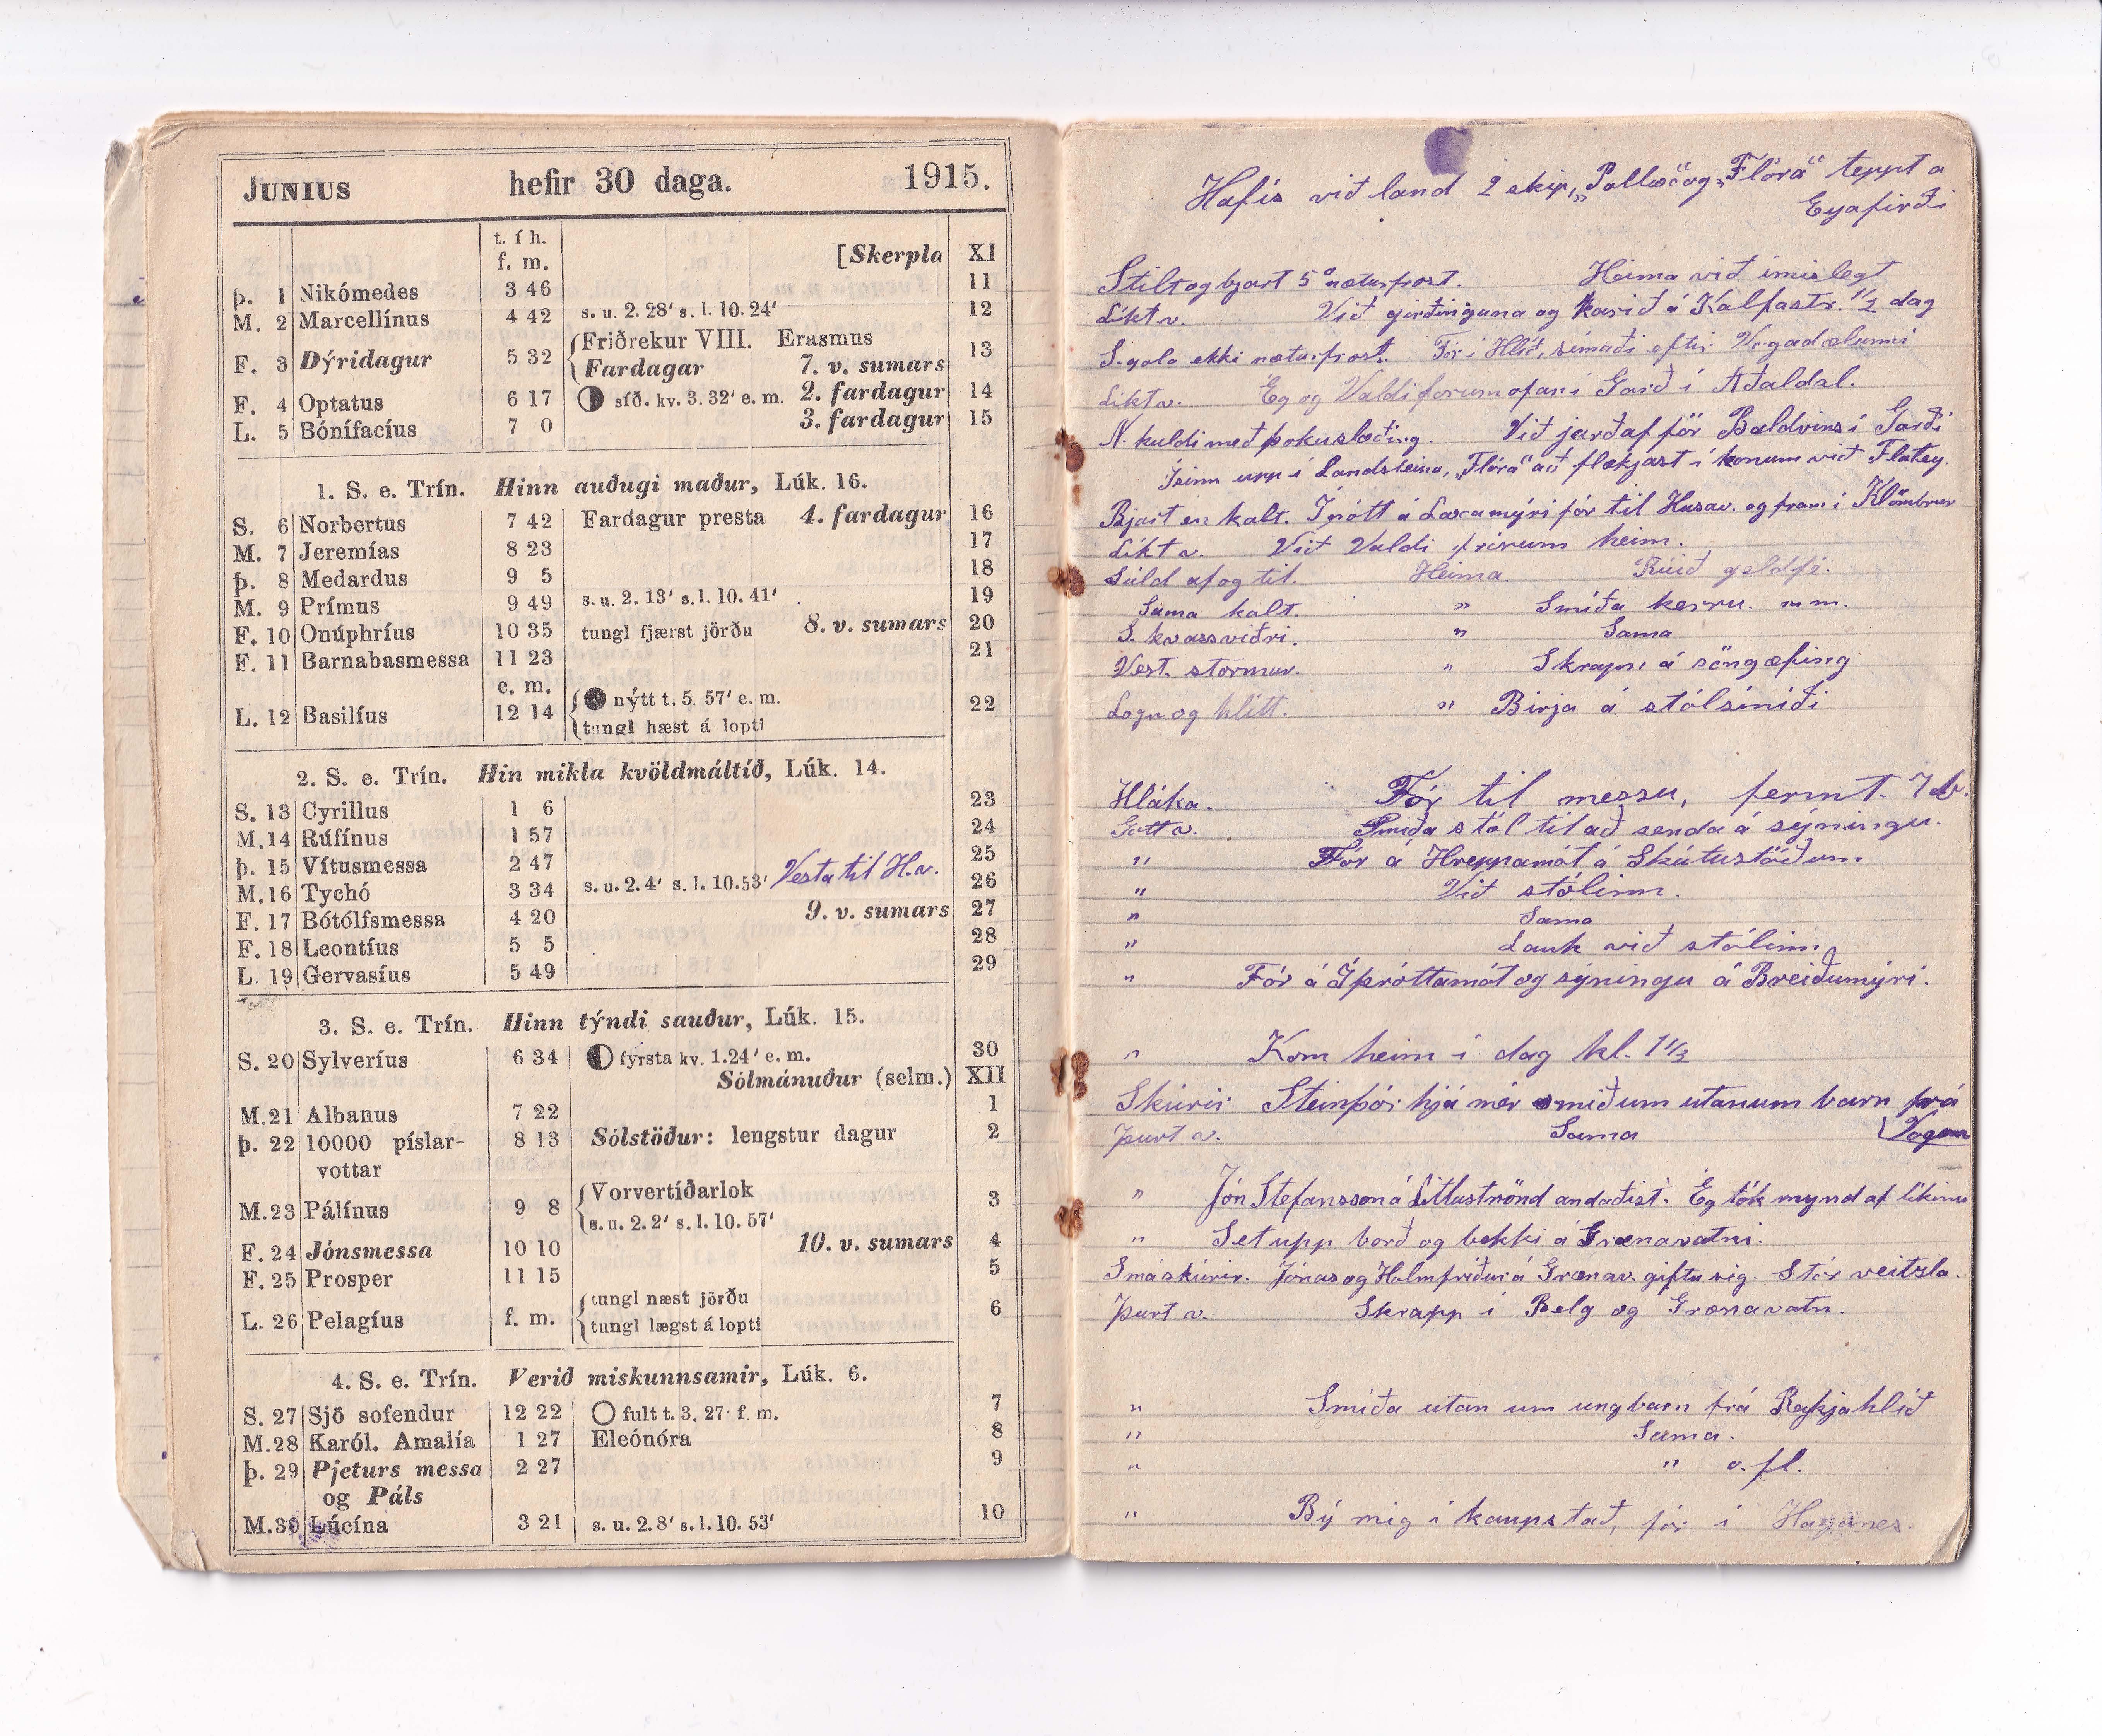 JUNIUS hefir 30 daga. 1915.
t. í h.
f. m. [Skerpla XI
þ. 1 Nikómedes 3 46 11
M. 2 Marcellínus 4 42 s. u. 2. 28′ s. l. 10. 24′ 12
F. 3 Dýridagur 5 32 Friðrekur VIII. Erasmus 13
Fardagar 7. v. sumars
F. 4 Optatus 6 17 síð. kv. 3. 32′ e. m. 2. fardagur 14
L. 5 Bónífacíus 7 0 3. fardagur 15
1. S. e. Trín. Hinn auðugi maður, Lúk. 16.
S. 6 Norbertus 7 42 Fardagur presta 4. fardagur 16
M. 7 Jeremías 8 23 17
þ. 8 Medardus 9 5 18
M. 9 Prímus 9 49 s. u. 2. 13′ s. l. 10. 41′ 19
F. 10 Onúphríus 10 35 tungl fjærst jörðu 8. v. sumars 20
F. 11 Barnabasmessa 11 23 21
e. m.
L. 12 Basilíus 12 14 nýtt t. 5. 57′ e. m. 22
tungl hæst á lopti
2. S. e. Trín. Hin mikla kvöldmáltíð, Lúk. 14.
S. 13 Cyrillus 1 6 23
M. 14 Rúfínus 1 57 24
þ. 15 Vítusmessa 2 47 25
M. 16 Tychó 3 34 s. u. 2. 4′ s. l. 10. 53′ Vesta til H.v. 26
F. 17 Bótólfsmessa 4 20 9. v. sumars 27
F. 18 Leontíus 5 5 28
L. 19 Gervasíus 5 49 29
3. S. e. Trín. Hinn týndi sauður, Lúk. 15.
S. 20 Sylveríus 6 34 fyrsta kv. 1. 24′ e. m. 30
Sólmánuður (selm.) XII
M. 21 Albanus 7 22 1
þ. 22 10000 píslar- 8 13 Sólstöður: lengstur dagur 2
vottar
Vorvertíðarlok
M. 23 Pálínus 9 8 s. u. 2. 2′ s. l. 10. 57′ 3
F. 24 Jónsmessa 10 10 10. v. sumars 4
F. 25 Prosper 11 15 5
tungl næst jörðu
L. 26 Pelagíus f. m. tungl lægst á lopti 6
4. S. e. Trín. Verið miskunnsamir, Lúk. 6.
S. 27 Sjö sofendur 12 22 fult t. 3. 27′ f. m. 7
M. 28 Karól. Amalía 1 27 Eleónóra 8
þ. 29 Pjeturs messa 2 27 9
og Páls
M. 30 Lúcína 3 21 s. u. 2. 8′ s. l. 10. 53′ 10
Hafís við land 2 skip, „Pollux" og „Flóra" teppt a
Eyafirði
Stilt og bjart 5° næturfrost. Heima við ímislegt
Líkt v. Við girðinguna og karið á Kalfastr. 1/2 dag
S. gola ekki næturfrost. Fór í Hlíð, símaði eftir Vogadælunni
Líkt v. Ég og Valdi forum ofan í Garð í Aðaldal.
N. kuldi með þokuslæðing. Við jarðaf för Baldvins í Garði
Ísinn upp í Landsteina, „Flóra" að flækjast í honum við Flatey.
Bjart en kalt. Í nótt á Laxamýri fór til Husav. og fram í Klömbrur
Líkt v. Við Valdi frírum heim.
Súld af og til. Heima. Rúið geldfé.
Sama kalt. " Smíða kerru. m m.
S. kvassviðri. " Sama
Vest. stormur. " Skrapp á söngæfing
Logn og hlítt. " Birja á stólsmíði
Hláka. Fór til messu, fermt. 7 b.
Gott v. Smíða stól til að senda á sýningu.
" Fór á Hreppamót á Skútustöðum
" Við stólinn.
" Sama
" Lauk við stólinn.
" Fór á Íþróttamót og sýningu á Breiðumýri.
" Kom heim í dag kl. 1 1/2
Skúrir Steinþór hjá mér smiðum utanum barn frá
Þurt v. Sama Vogum
" Jón Stefansson á Litluströnd andaðist. Ég tók mynd af líkinu
" Set upp borð og bekki á Grænavatni.
Smáskúrir. Jónas og Holmfriður á Grænav. giftu sig. Stór veitsla.
Þurt v. Skrapp í Belg og Grænavatn.
" Smíða utan um ungbarn frá Reykjahlíð
" Sama.
" " o. fl.
" Bý mig í kaupstað, fór í Haganes.